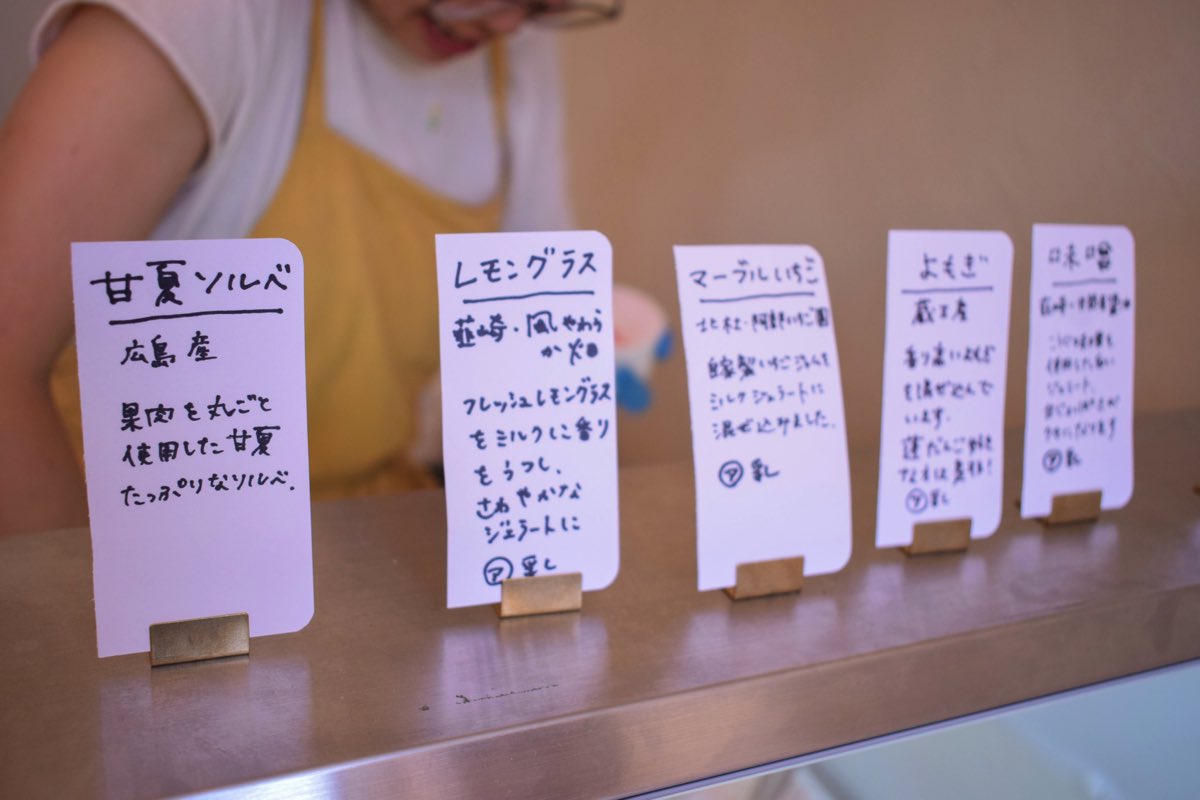 甘夏ソルベ
広島産
果肉を丸ごと
使用した甘夏
たっぷりなソルベ.
レモングラス
韮崎・風しゃわら
か畑
フレッシュレモングラス
をミルクに香り
をうつし、
さわやかな
ジェラートに
ア 乳
マーブルいちご
自家製いちごジャムを
ミルクジェラートに
混ぜ込みました.
ア 乳
よもぎ
蔵王産
香り高いよもぎ
を混ぜ込んで
います.
ア 乳
味噌
使用した
ジェラート.
ア 乳